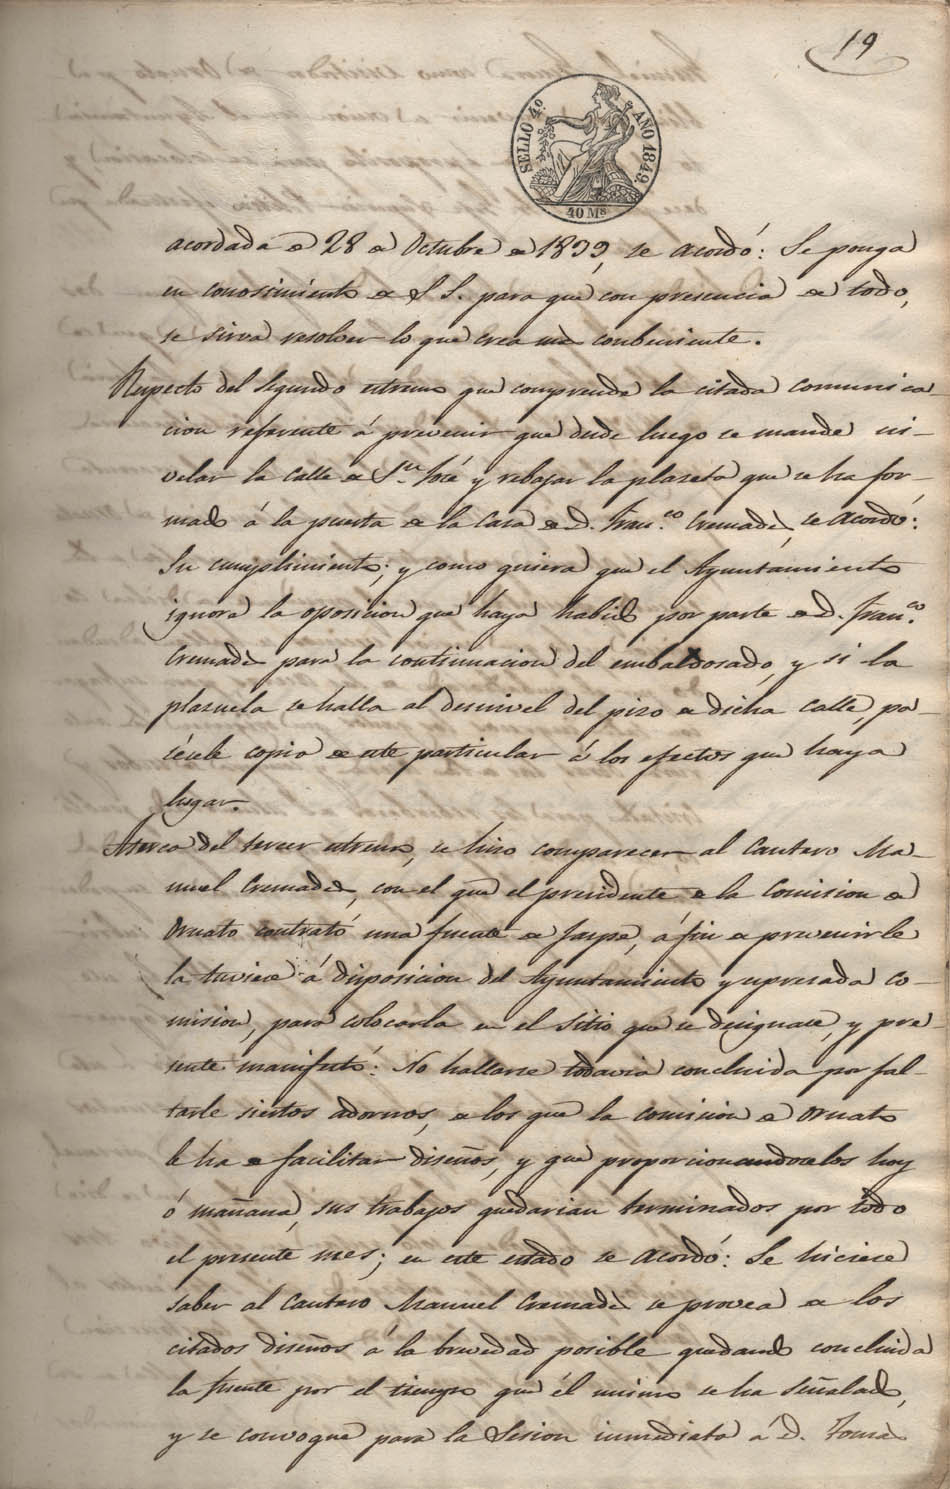 19
SELLO 4º. AÑO 1849.
40 Ms
acordada en 28 de Octubre de 1839, se acordó: Se ponga
en conosimiento de S S. para que con presencia de todo,
se sirva resolver lo que crea mas conbeniente.
Respecto del segundo estremo que comprende la citada comunica-
cion referente á prevenir que desde luego se mande ni-
velar la calle de Sn. José y rebajar la plazeta que se ha for-
mado á la puerta de la casa de D. Fran.co Cremades, se acordó:
Su cumplimiento; y como quiera que el Ayuntamiento
ignora la oposicion que haya habido por parte de D. Fran.co
Cremades para la continuacion del embaldosado, y si la
plazuela se halla al desnivel del piso de dicha calle, pa-
sesele copia de este particular á los efectos que haya
lugar.
Aserca del tercer estremo, se hizo comparecer al cantero Ma-
nuel Cremades, con el que el presidente de la Comision de
Ornato contrató una fuente de jaspe, á fin de prevenirle
la tuviese á disposicion del Ayuntamiento y espresada co-
mision, para colocarla en el sitio que se designase, y pre-
sente manifestó: No hallarse todavia concluida por fal-
tarle siertos adornos, de los que la comision de Ornato
le ha de facilitar diseños, y que proporcionandoselos hoy
ó mañana, sus trabajos quedarian terminados por todo
el presente mes; en este estado se acordó: Se hiciese
saber al cantero Manuel Cremades se provea de los
citados diseños á la brevedad posible quedando concluida
la fuente por el tiempo que él mismo se ha señalado,
y se convoque para la Sesion inmediata á D. Tomas